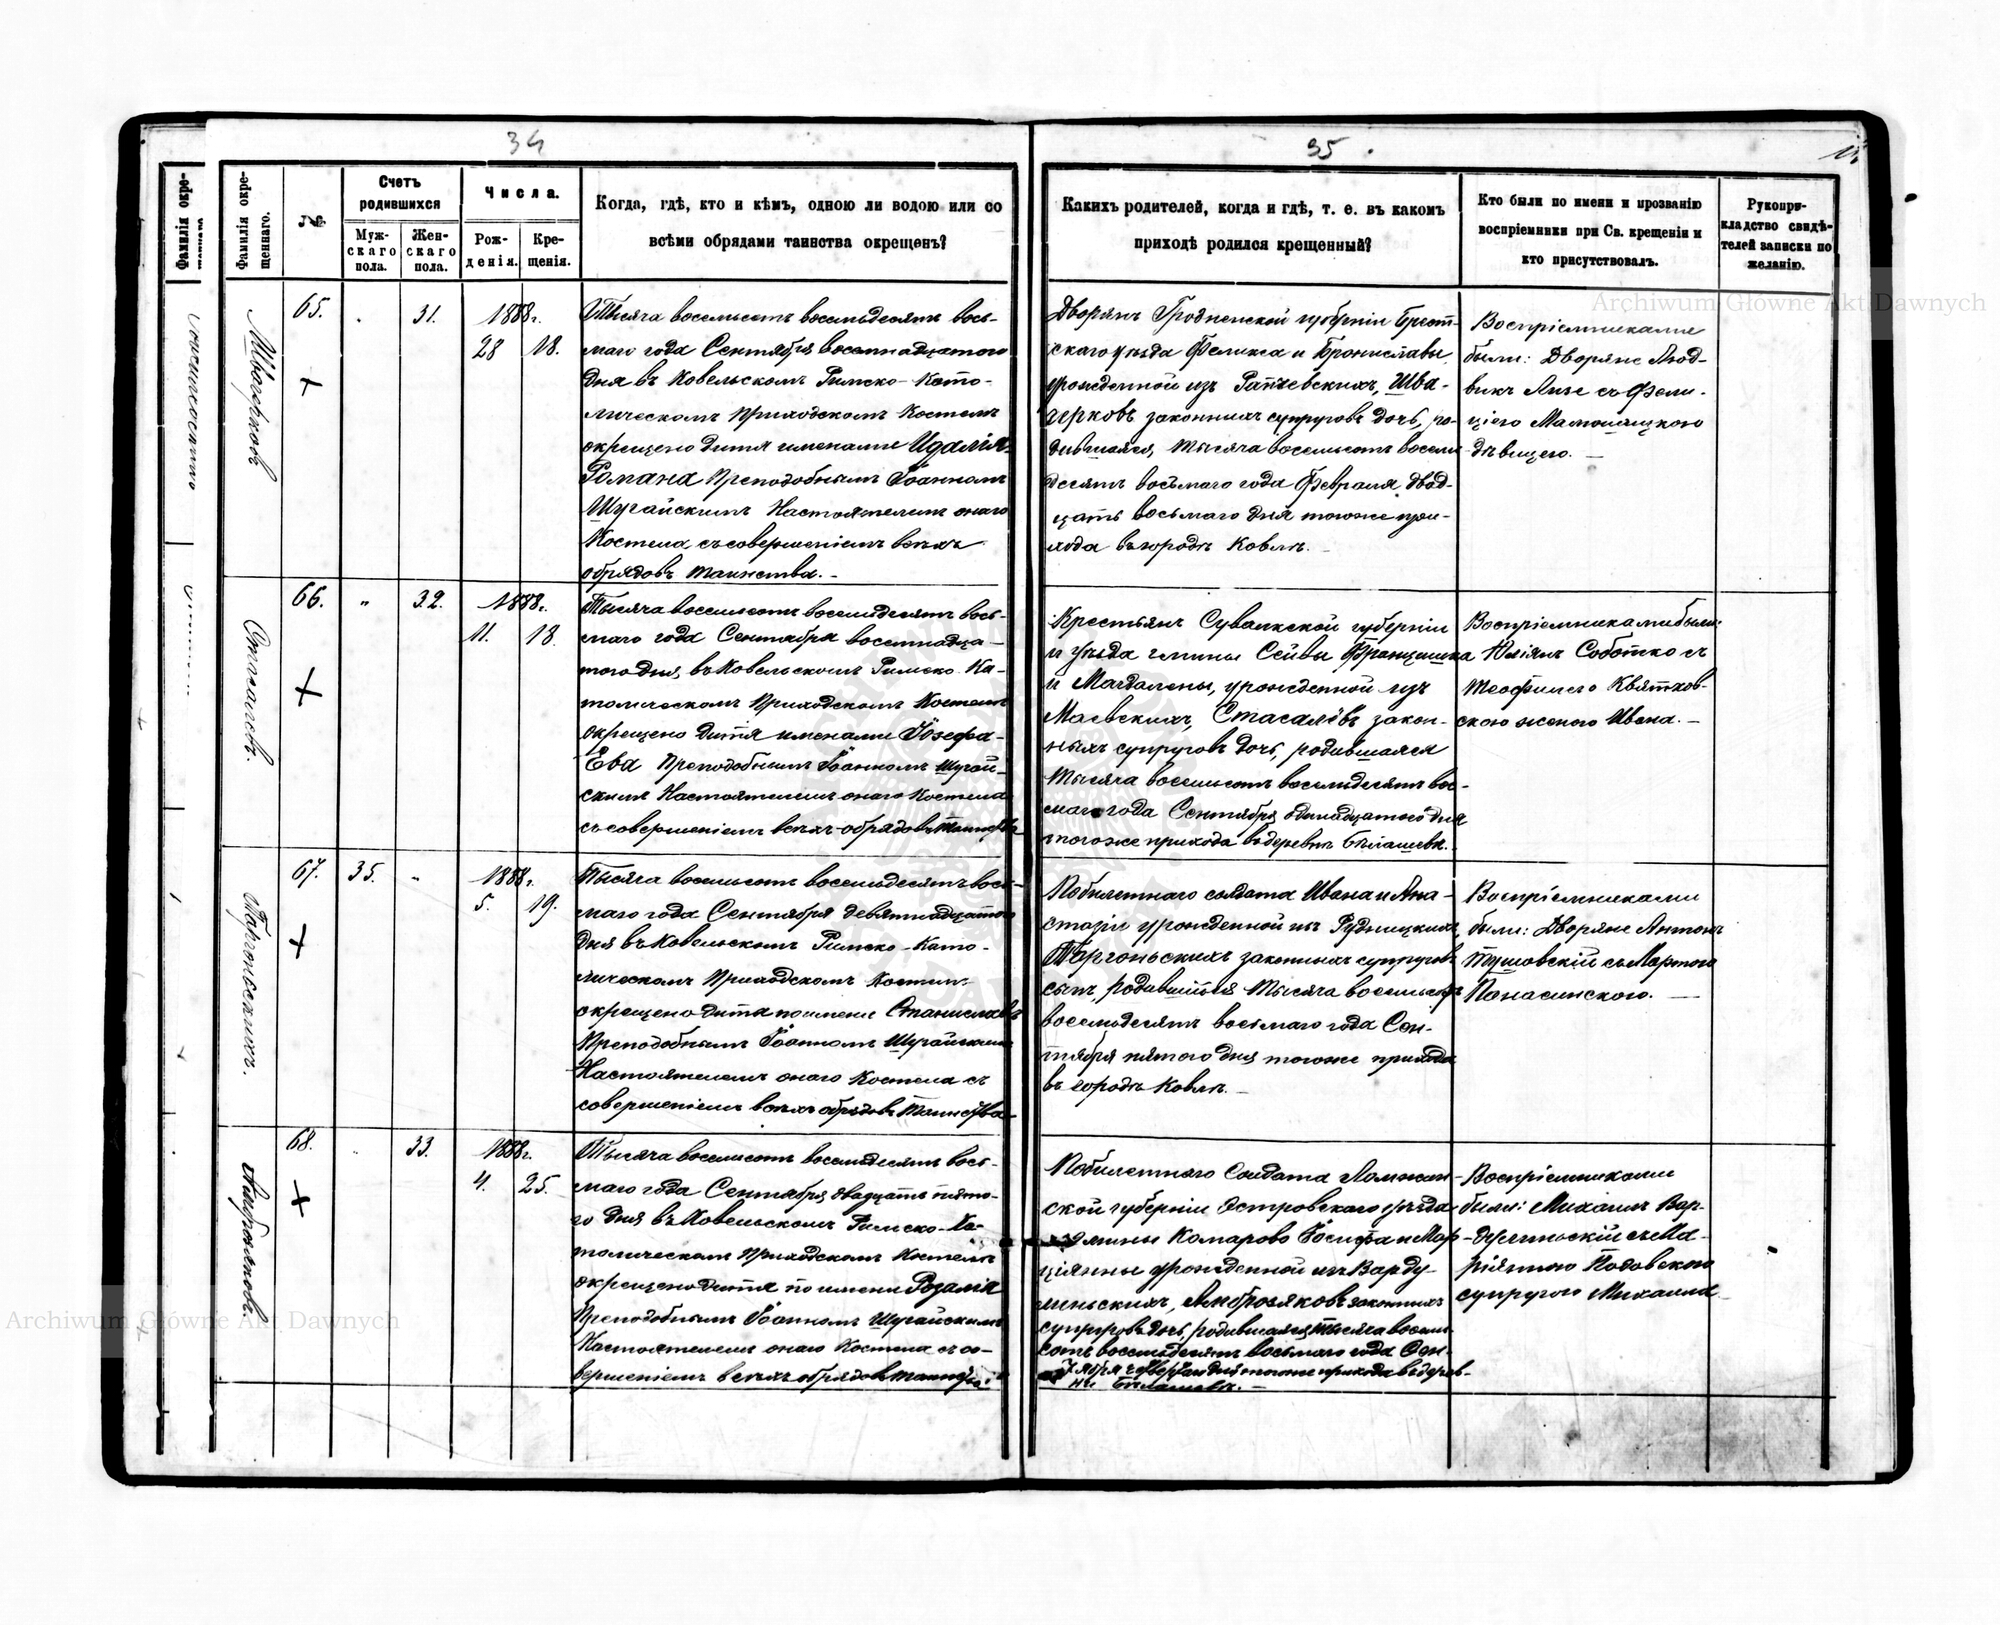 34
35
Фамилія окре-
Фамилія окре-
щеннаго.
№
Счетъ
родившихся
Муж-
скаго
пола.
Жен-
скаго
пола.
Числа.
Рож-
денія.
Кре-
щенія.
Когда, гдѣ, кто и кѣмъ, одною ли водою или со
всѣми обрядами таинства окрещенъ?
Какихъ родителей, когда и гдѣ, т. е. въ какомъ
приходѣ родился крещенный?
Кто были по имени и прозванію
воспріемники при Св. крещеніи и
кто присутствовалъ.
Рукопри-
кладство свидѣ-
телей записки по
желанію.
Archiwum Główne Akt Dawnych
65.
31.
1888г.
28
18.
Тысяча восемьсотъ восемьдесятъ вось-
маго года Сентября восемнадцатого
дня въ Ковельскомъ Римско-Като-
лическомъ Приходскомъ Костелѣ
окрещено дитя именами Идалія-
Романа Преподобнымъ Іоанномъ
Шугайскимъ Настоятелемъ онаго
Костела, съ совершеніемъ всѣхъ
обрядовъ таинства.-
Дворянъ Гродненской губерніи Брест-
скаго уѣзда Феликса и Брониславы,
урожденной изъ Рапчевскихъ, Шва-
черковъ законныхъ супруговъ дочь, ро-
дившаяся, тысяча восемьсотъ восемь
десятъ восьмаго года Февраля двад-
цать восьмаго дня тогоже при-
хода въ городѣ Ковлѣ.-
Воспріемниками
были: Дворяне Люд-
викъ Лизе съ Фели-
ціею
дѣвицею.-
Стасалевъ.
66.
"
32.
1888г.
11.
18.
Тысяча восемьсотъ восемьдесятъ вось-
маго года Сентября восемнадца-
того дня, въ Ковельскомъ Римско-Ка-
толическомъ Приходскомъ Костелѣ
окрещено дитя именами Іозефа-
Ева Преподобнымъ Іоанномъ Шугай-
скимъ Настоятелемъ онаго Костела
съ совершеніемъ всѣхъ обрядовъ таинства
Крестьянъ Сувалкской губерніи
и уѣзда гмины Сейвы Францишка
и Магдалены, урожденной изъ
Маевскихъ, Стасалёвъ закон-
ныхъ супруговъ дочь, родившаяся
тысяча восемьсотъ восемьдесятъ вос-
маго года Сентября одинадцатого дня
тогоже прихода въ деревнѣ Билашевѣ.
Воспріемниками были:
Юліянъ Соботко съ
Теофилею Квятков-
скою женою Ивана.-
67.
35.
"
1888г.
5.
19.
Тысяча восемьсотъ восемьдесятъ вось-
маго года Сентября девятнадцатого
дня въ Ковельскомъ Римско-Като-
лическомъ Приходскомъ Костелѣ
окрещено дитя по имени Станиславъ
Преподобнымъ Іоанномъ Шугайскимъ
Настоятелемъ онаго Костела съ
совершеніемъ всѣхъ обрядовъ таинства
Побилетнаго солдата Ивана и Ана-
стазіи урожденной изъ Рудницкихъ,
Таргоньскихъ законныхъ супруговъ
сынъ, родившійся тысяча восемьсотъ
восемьдесятъ восьмаго года Сен-
тября пятого дня тогоже прихода
въ городѣ Ковлѣ.-
Воспріемниками
были: Дворяне Антонъ
Тушовскій съ Мартою
Панасинскою.-
68.
33.
1888г.
4.
25.
Тысяча восемьсотъ восемьдесятъ вось-
маго года Сентября двадцать пято-
го дня въ Ковельскомъ Римско-Ка-
толическомъ Приходскомъ Костелѣ
окрещено дитя по имени Розалія
Преподобнымъ Іоанномъ Шугайскимъ
Настоятелемъ онаго Костела съ со-
вершеніемъ всѣхъ обрядовъ таинства
Побилетнаго Солдата Ломжин-
ской губерніи Островскаго уѣзда
гмины Комарово Іосифа и Мар-
ціянны урожденной изъ Варду-
линьскихъ, Амброзяковъ законныхъ
супруговъ дочь, родившаяся тысяча восемь-
сотъ восемьдесятъ восьмаго года Сен-
тября четвертаго дня тогоже прихода въ дерев-
нѣ Билашевѣ.-
Воспріемниками
были: Михаилъ Вар-
дулиньскій съ Ма-
ріянною Подовскою
супругою Михаила
Archiwum Główne Akt Dawnych